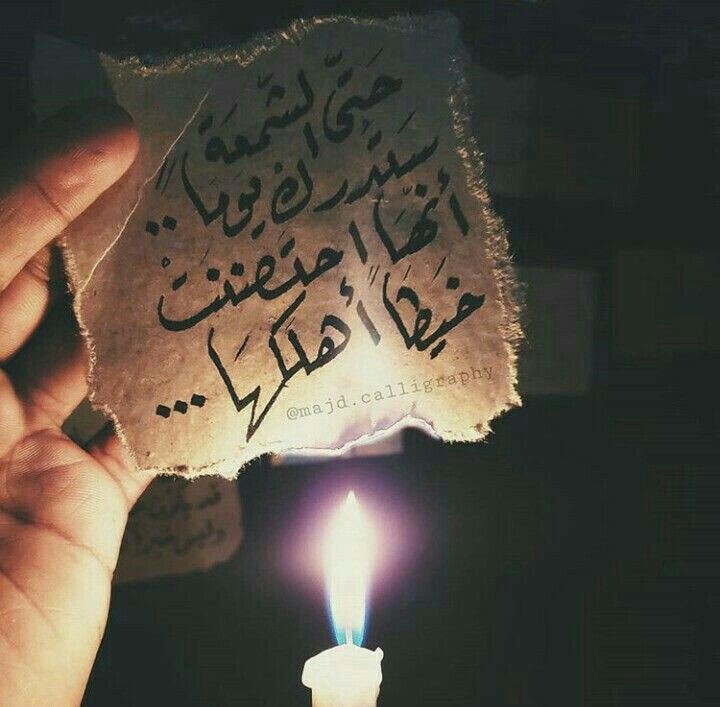 حَتّى الشَّمعَة
سَتدرك يَومًا ..
أنَّهَا احتَضنَتْ
خَيطًا أهلَكَهَا ...
@majd.calligraphy